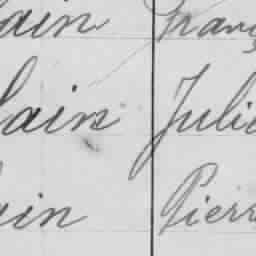 ain Franç
Sain Julie
ain Pierr